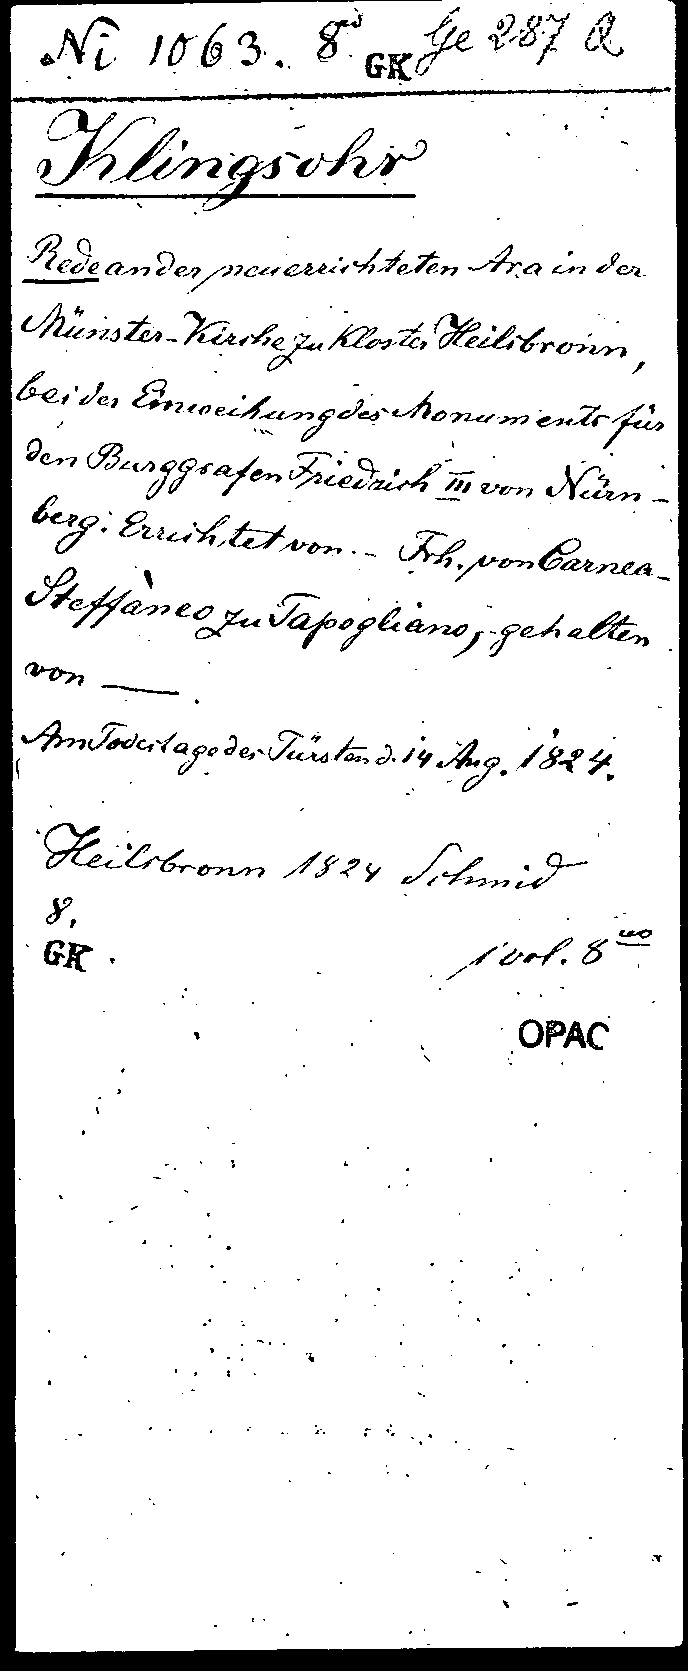 Ni 1063. 8vo GK Ge 287 Q
Klingsohr
Rede an der neuerrichteten Ara in der
Münster-Kirche zu Kloster Heilsbronn,
bei der Einweihung des Monuments für
den Burggrafen Friedrich III von Nürn-
berg. Errichtet von.- Frh. von Carnea-
Steffàneo zu Tapogliano, gehalten
von —
Am Todestage des Fürsten d. 14 Aug. 1824.
Heilsbronn 1824 Schmid
8.
GK
1 vol. 8vo
OPAC